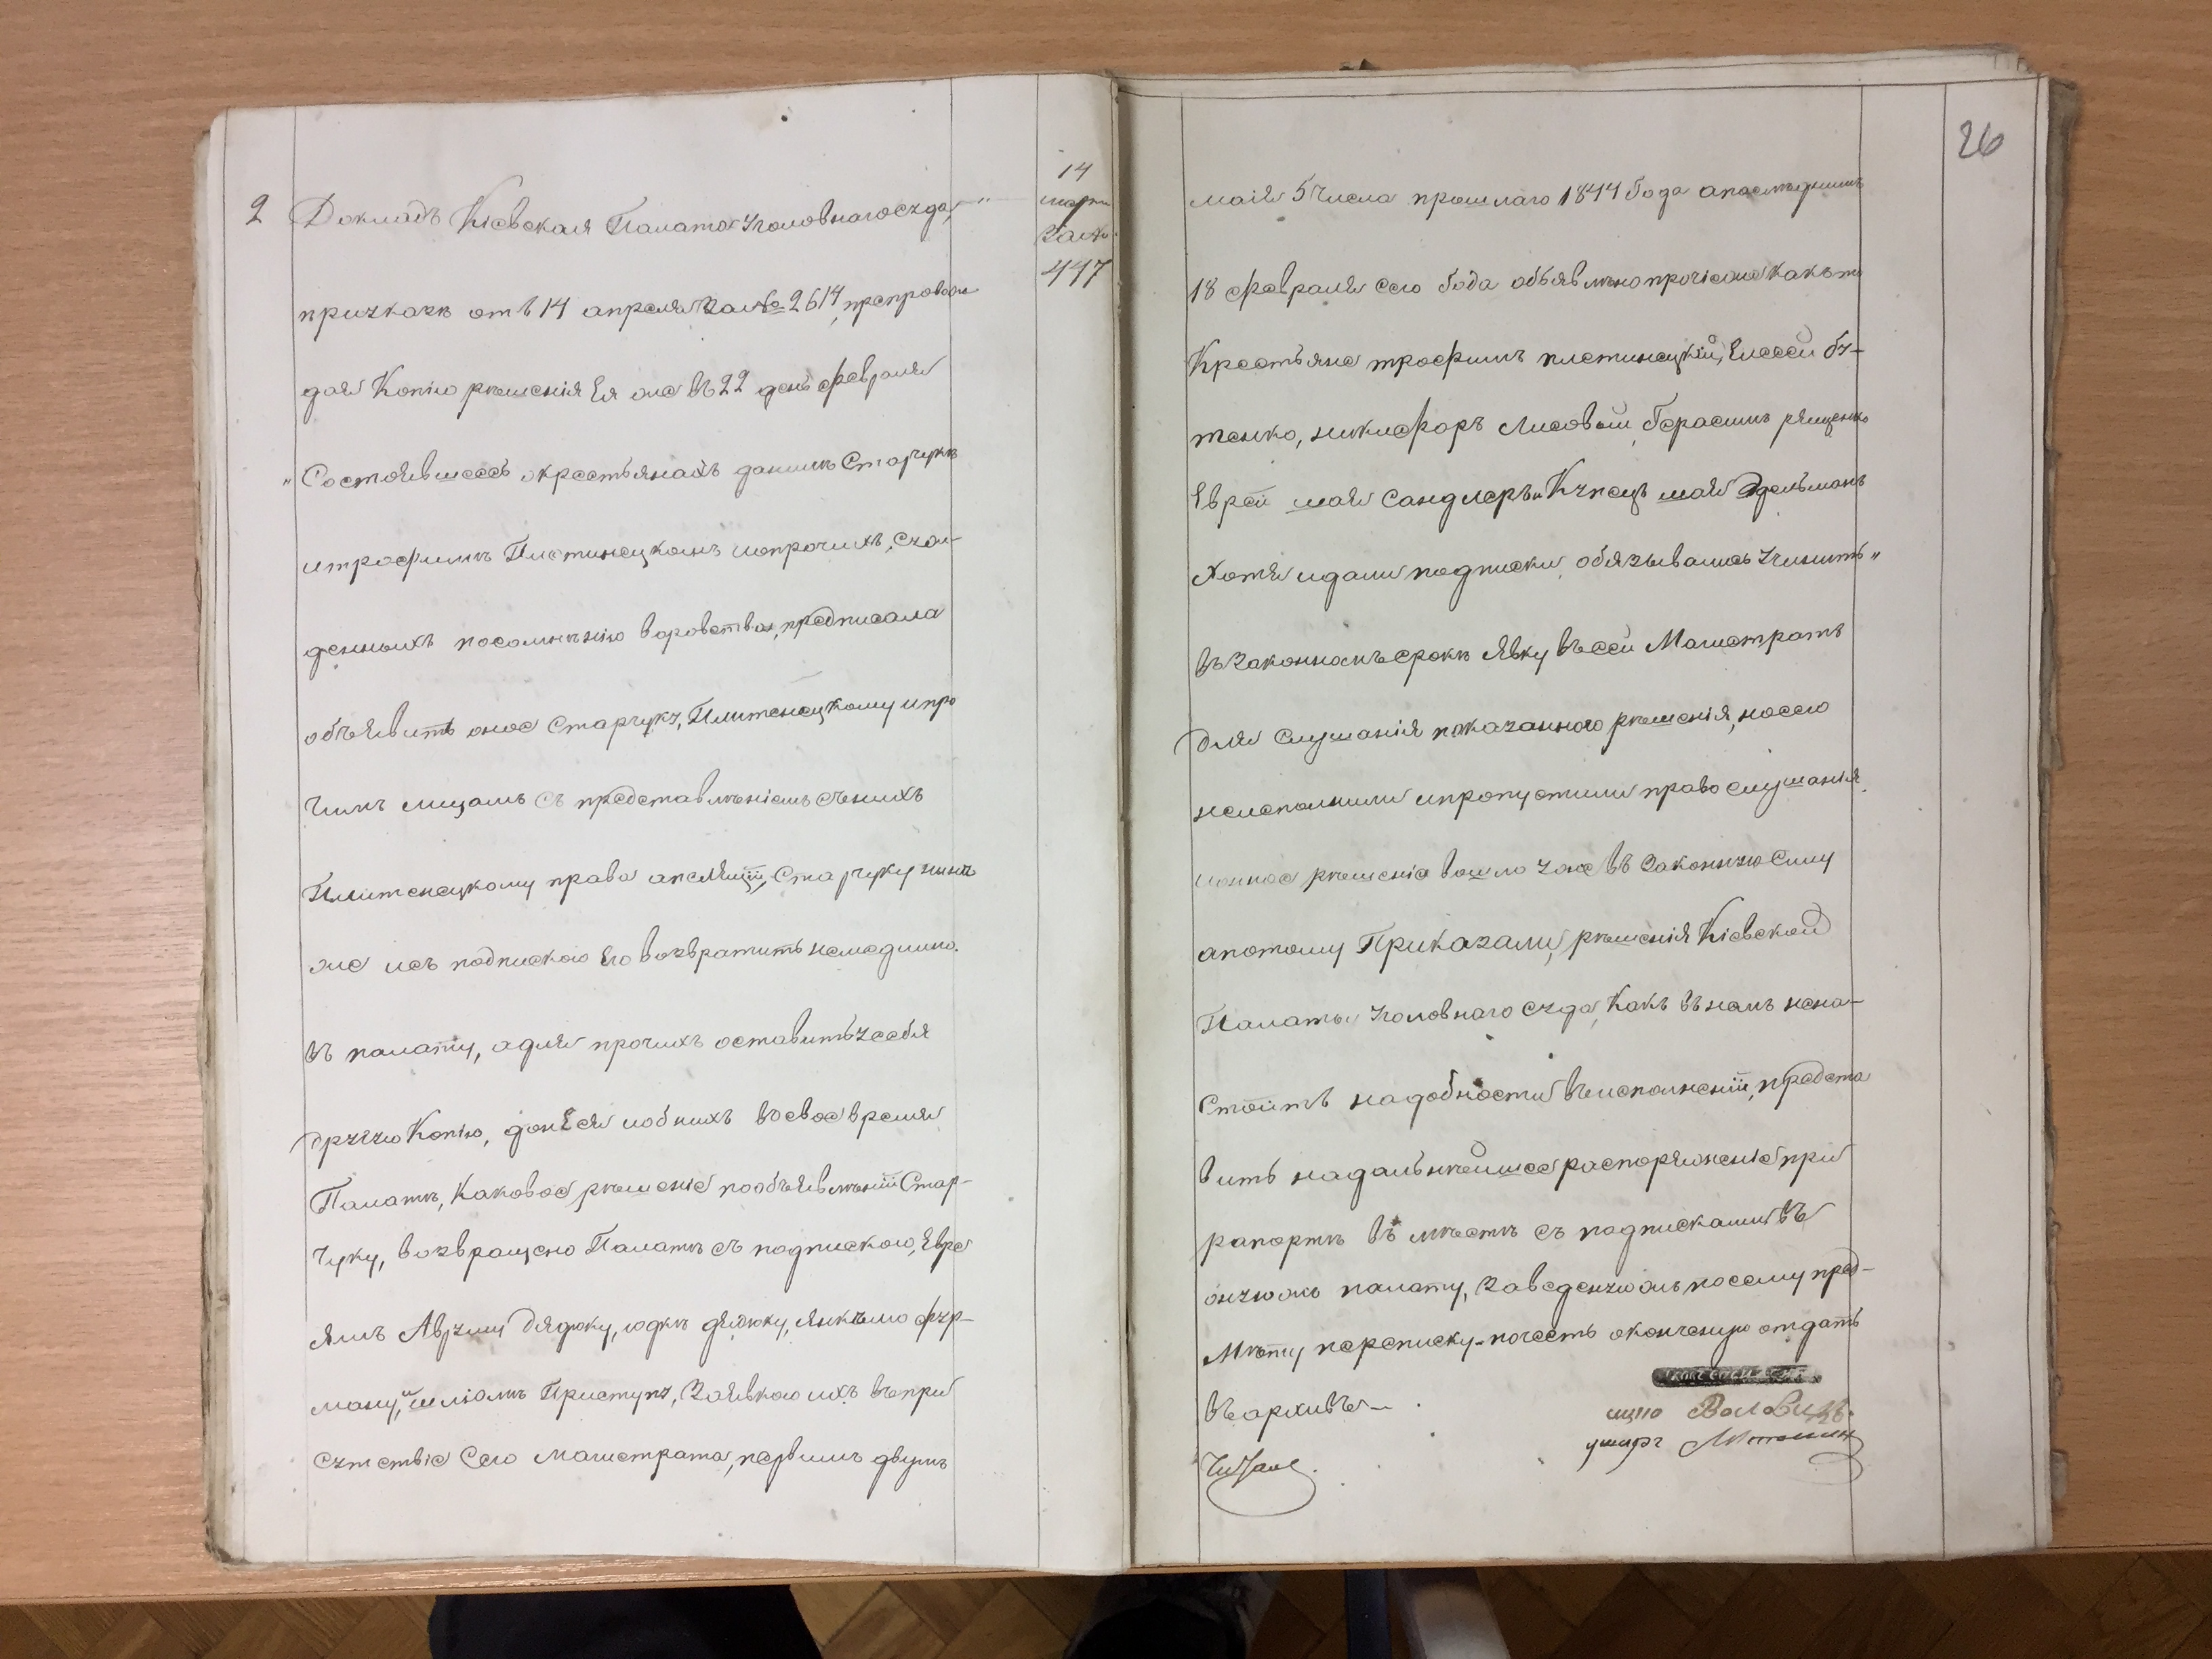 2 Докладъ Кіевская Палата Уголовнаго суда,
14
марта
за №
447
при указѣ отъ 14 апреля за № 2614, препровож
дая Копію рѣшенія Ея же въ 22 день февраля
Состоявшеесь о крестьянахъ данилѣ Старчукѣ
и трофимѣ Плитинецкомъ и прочихъ, суж-
денныхъ по сомнѣнію воровства, предписала
объявить оное Старчуку, Плитенецкому и про
чимъ лицамъ съ представлѣніемъ съ нихъ
Плитенецкому права апеляціи, Старчуку ныне
же и съ подпискою Его возвратить немедлино.
въ палату, а для прочихъ оставить у себя
другую Копію, донЕся и об нихъ во свое время
Палатѣ, Каковое рѣшеніе по объявлѣніи Стар-
чуку, возвращено Палатѣ съ подпискою, Евре
ямъ Авруму дядюку, юдкѣ дядюку, янкелю фур-
ману, и шліомѣ Приступу, За явкою ихъ въ при
сутствіе Сего Магистрата, первимъ двумъ
26
маія 5 числа прошлаго 1844 Года а последнимъ
18 февраля сего Года объявлѣно прочіе же какъ то
Крестьяне трофимъ плетинецкій, Елесей бу-
тенко, никифоръ Лисовый, Герасимъ рященко
Еврей шая Сандлеръ и Купецъ шая Эдельманъ
Хотя и дали подписки, обязывались учинить
въ Законномъ срокѣ Явку въ сей Магистратъ
для Слушанія показанного рѣшенія, но сего
не исполнили и пропустили право слушанія
и оное рѣшеніе вошло уже въ Законную Силу
а потому Приказали, рѣшенія Кіевской
Палаты Уголовнаго Суда, Какъ въ немъ нена-
стоитъ надобности въ исполненіи, предста
вить на дальнѣйшее распоряженіе при
рапортѣ въ мѣстѣ съ подписками въ
онуюжъ палату, Заведенуюжъ по сему пред-
мѣту переписку почесть оконченую отдать
въ архивъ